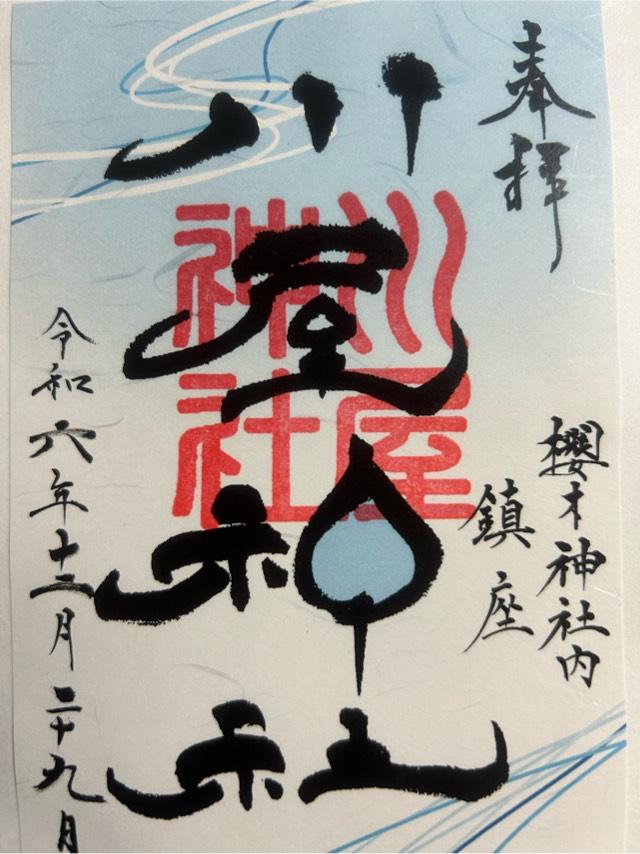 奉拝
櫻木神社内
鎮座
川屋神社
川屋
神社
令和六年十二月二十九日